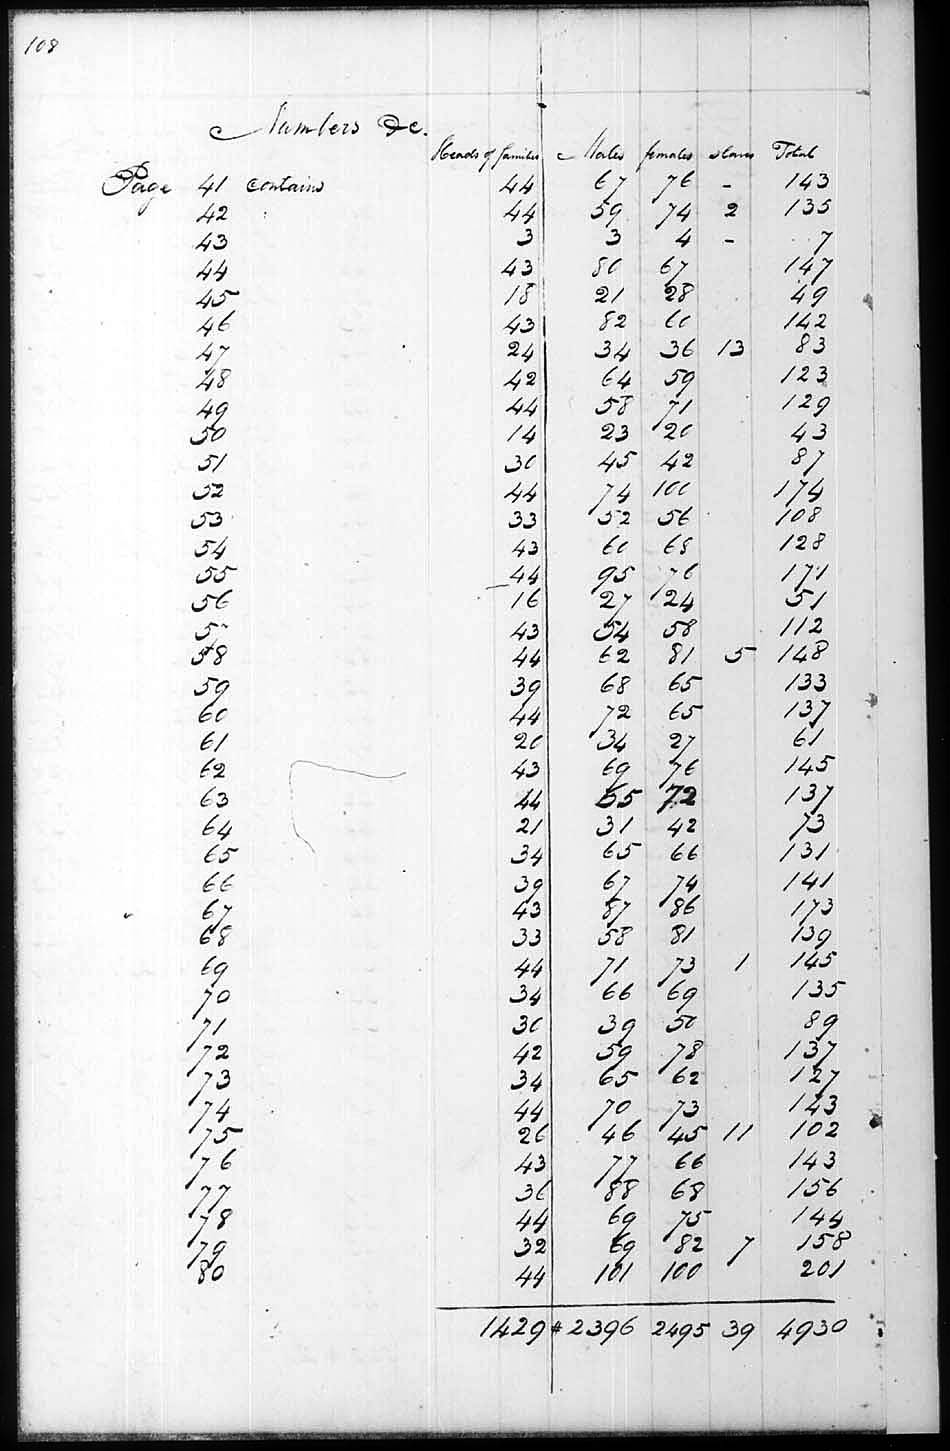 108
Numbers &c.
Heads of families Males females slaves Total
Page 41 contains 44 67 76 - 143
42 44 59 74 2 135
43 3 3 4 - 7
44 43 80 67 147
45 18 21 28 49
46 43 82 60 142
47 24 34 36 13 83
48 42 64 59 123
49 44 58 71 129
50 14 23 20 43
51 30 45 42 87
52 44 74 100 174
53 33 52 56 108
54 43 60 68 128
55 44 95 76 171
56 16 27 24 51
5 43 54 58 112
58 44 62 81 5 148
59 39 68 65 133
60 44 72 65 137
61 20 34 27 61
62 43 69 76 145
63 44 65 72 137
64 21 31 42 73
65 34 65 66 131
66 39 67 74 141
67 43 87 86 173
68 33 58 81 139
69 44 71 73 1 145
70 34 66 69 135
71 30 39 50 89
72 42 59 78 137
73 34 65 62 127
74 44 70 73 143
75 26 46 45 11 102
76 43 77 66 143
77 36 88 68 156
78 44 69 75 144
79 32 69 82 7 158
80 44 101 100 201
1429 2396 2495 39 4930